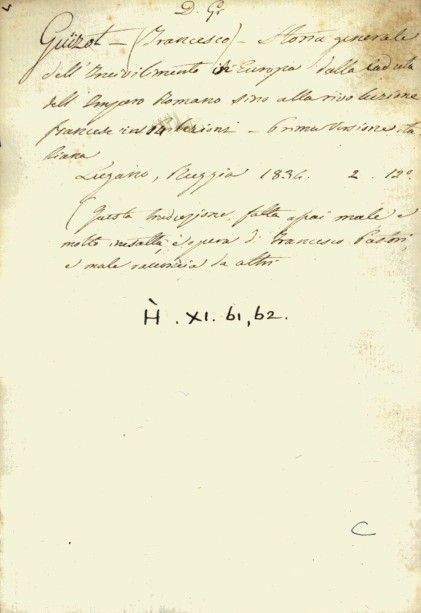 D. Gr
Guizot – (Francesco) – Storia generale
dell'Incivilimento in Europa dalla caduta
dell'Impero Romano sino alla rivoluzione
francese in 14 lezioni – Prima versione ita
liana
Lugano, Ruggia 1834. 2. 12º
(Questa traduzione, fatta assai male e
molto inesatta, è opera di Francesco Pastori
e male racconcia da altri
H . XI. 61, 62.
C